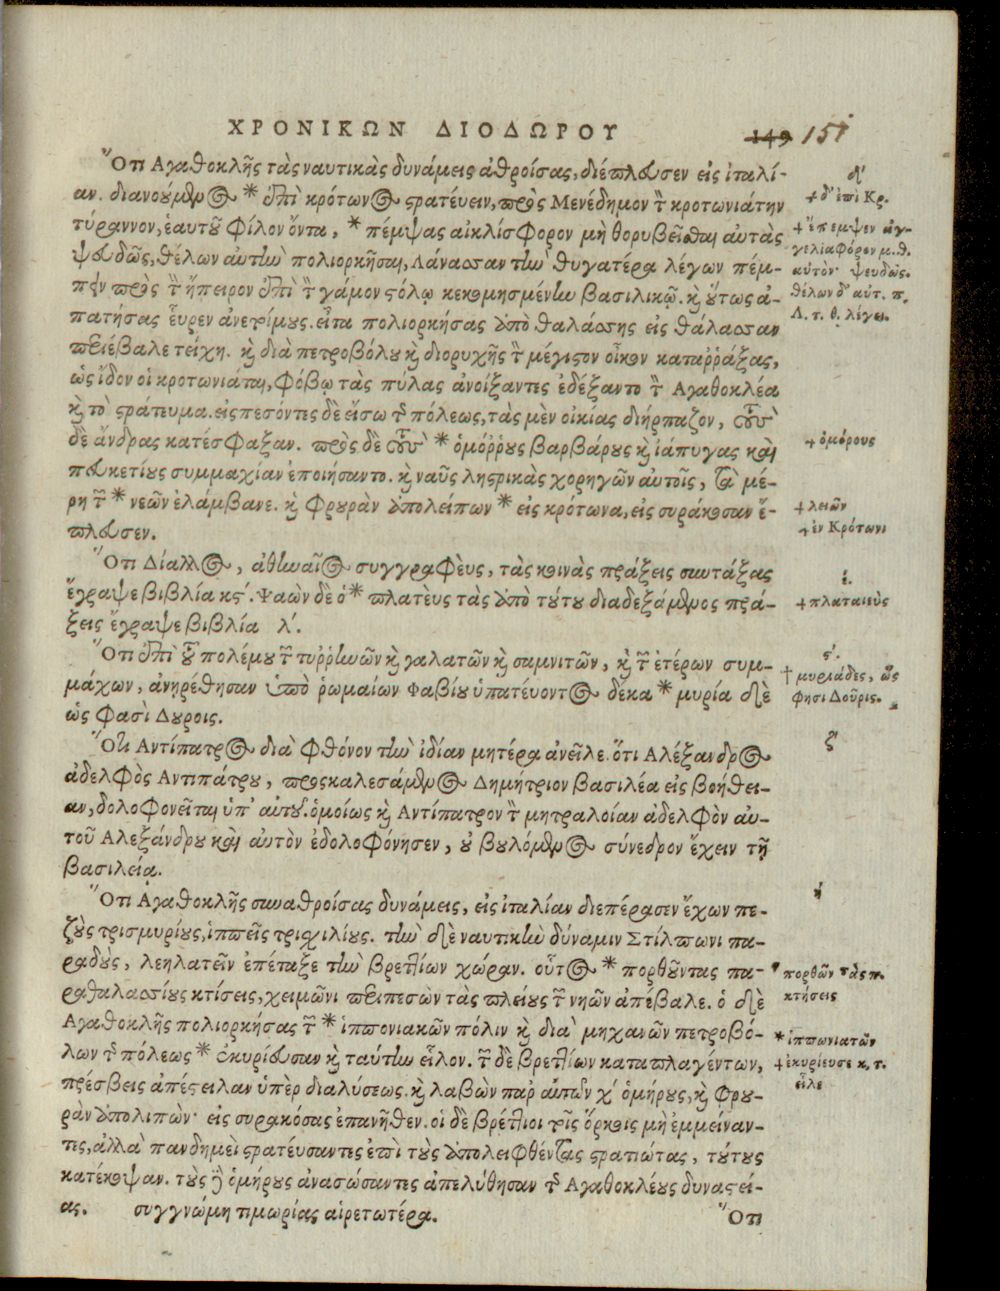 ΧΡΟΝΙΚΩΝ ΔΙΟΔΩΡΟΥ 149 151
Ὅτι Ἀγαθοκλῆς τὰς ναυτικὰς δυνάμεις ἀθροίσας, διέπλευσεν εἰς ἰταλί-
αν. διανούμενος * ἐπὶ κρότωνος στρατεύειν, πρὸς Μενέδημον τὸν κροτωνιάτην
τύραννον, ἑαυτοῦ φίλον ὄντα, * πέμψας αἰκλίσφορον μὴ θορυβεῖσθαι αὐτὰς
ψευδῶς, θέλων αὐτὴν πολιορκῆσαι, Λάνασσαν τὴν θυγατέρα λέγων πέμ-
πειν πρὸς τὸν ἤπειρον ἐπὶ τὸν γάμον στόλῳ κεκοσμησμένην βασιλικῷ. καὶ οὕτως ἀ-
πατήσας εὗρεν ἀνετοίμους. εἶτα πολιορκήσας ἀπὸ θαλάσσης εἰς θάλασσαν
περιέβαλε τείχη. καὶ διὰ πετροβόλου καὶ διορυχῆς τὸν μέγιστον οἶκον καταῤῥάξας,
ὡς ἴδον οἱ κροτωνιάται, φόβω τὰς πύλας ἀνοίξαντες ἐδέξαντο τὸν Ἀγαθοκλέα
καὶ τὸ στράτευμα. εἰσπεσόντες δὲ εἴσω τῆς πόλεως, τὰς μὲν οἰκίας διήρπαζον, τοὺς
δὲ ἄνδρας κατέσφαξαν. πρὸς δὲ τοὺς * ὁμόῤῥους βαρβάρους καὶ ἰάπυγας καὶ
πευκετίους συμμαχίαν ἐποιήσαντο. καὶ ναῦς λῃστρικὰς χορηγῶν αὐτοῖς, τὰ μέ-
ρη τῶν * νεῶν ἐλάμβανε. καὶ φρουρὰν ἀπολείπων * εἰς κρότωνα, εἰς συράκοσαν ἔ-
πλευσεν.
Ὅτι Δίαλλος, ἀθηναῖος συγγραφεὺς, τὰς κοινὰς πράξεις συντάξας
ἔγραψε βιβλία κϛʹ. Ψαὼν δὲ ὁ * πλατεὺς τὰς ἀπὸ τούτου διαδεξάμενος πρά-
ξεις ἔγραψε βιβλία λʹ.
Ὅτι ἐπὶ τοῦ πολέμου τῶν τυῤῥηνῶν καὶ γαλατῶν καὶ σαμνιτῶν, καὶ τῶν ἑτέρων συμ-
μάχων, ἀνῃρέθησαν ὑπὸ ῥωμαίων Φαβίου ὑπατεύοντος δέκα * μυρία δὲ
ὡς φασὶ Δουροις.
Ὅτι Ἀντίπατρος διὰ φθόνον τὴν ἰδίαν μητέρα ἀνεῖλε. ὅτι Ἀλέξανδρος
ἀδελφὸς Ἀντιπάτρου, προσκαλεσάμενος Δημήτριον βασιλέα εἰς βοήθει-
αν, δολοφονεῖται ὑπ' αὐτοῦ. ὁμοίως καὶ Ἀντίπατρον τὸν μητραλοίαν ἀδελφὸν αὐ-
τοῦ Ἀλεξάνδρου καὶ αὐτὸν ἐδολοφόνησεν, οὐ βουλόμενος σύνεδρον ἔχειν τῇ
βασιλείᾳ.
Ὅτι Ἀγαθοκλῆς συναθροίσας δυνάμεις, εἰς ἰταλίαν διεπέρασεν ἔχων πε-
ζοὺς τρισμυρίους, ἱππεῖς τριχιλίους. τὴν δὲ ναυτικὴν δύναμιν Στίλπωνι πα-
ραδοὺς, λεηλατεῖν ἐπέταξε τὴν βρεττίων χώραν. οὗτος * πορθοῦντας πα-
ραθαλασσίους κτίσεις, χειμῶνι περιπεσὼν τὰς πλείους τῶν νηῶν ἀπέβαλε. ὁ δὲ
Ἀγαθοκλῆς πολιορκήσας τῶν * ἱππονιακῶν πόλιν καὶ διὰ μηχανῶν πετροβό-
λων τῆς πόλεως * ἐκυρίευσαν καὶ ταύτην εἷλον. τῶν δὲ βρεττίων καταπλαγέντων,
πρέσβεις ἀπέστειλαν ὑπὲρ διαλύσεως. καὶ λαβὼν παρ' αὐτῶν χʹ ὁμήρους, καὶ φρου-
ρὰν ἀπολιπὼν· εἰς συρακόσας ἐπανῆθεν. οἱ δὲ βρέττιοι τοῖς ὅρκοις μὴ ἐμμείναν-
τες, ἀλλὰ πανδημεὶ στρατεύσαντες ἐπὶ τοὺς ἀπολειφθέντας στρατιώτας, τούτους
κατέκοψαν. τοὺς δὲ ὁμήρους ἀνασώσαντες ἀπελύθησαν τῆς Ἀγαθοκλέους δυναστεί-
ας. συγγνώμη τιμωρίας αἱρετωτέρα. Ὅτι
δʹ
+ δ' ἐπὶ Κρ.
+ ἔπεμψεν ἀγ-
γελιαφόρον μ. θ.
αὐτόν· ψευδῶς.
θέλων δ' αὐτ. π.
Λ. τ. θ. λίγω.
+ ὁμόρους
+ λειῶν
+ ἐν Κρότωνι
ἐ.
+ πλαταιεὺς
ϛʹ.
† μυριάδες, ὥς
φησι Δοῦρις.
ζʹ
ή
πορθῶν τὰς π.
κτήσεις
* ἱππωνιατῶν
+ ἐκυρίευσε κ, τ.
εἷλε